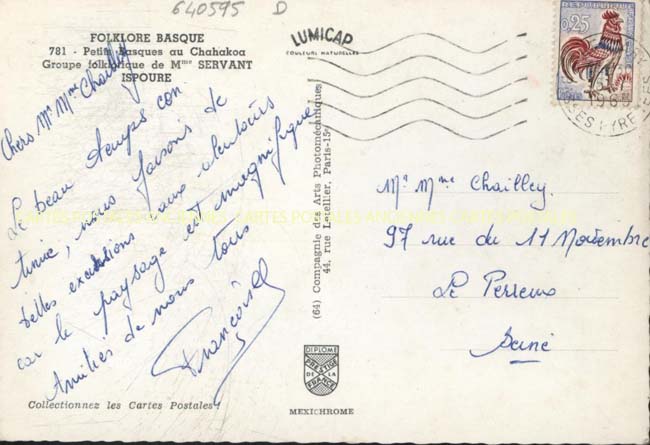 640595 D
FOLKLORE BASQUE
781 - Petits Basques au Chahakoa
Groupe folklorique de Mme SERVANT
ISPOURE
LUMICAP
COULEURS NATURELLES
0,25
Chers Mr Mme Chailley
Le beau temps con
tinue, nous faisons de
belles excursions aux alentours
car le paysage est magnifique
Amitiés de nous tous
Mr Mme Chailley.
97 rue du 11 Novembre
Le Perreux
Seine
(64) Compagnie des Arts Photomécaniques
44, rue Letellier, Paris-15e
DIPLOME
PRESTIGE
DE LA
FRANCE
MEXICHROME
Collectionnez les Cartes Postales !
CARTES POSTALES ANCIENNES CARTES POSTALES